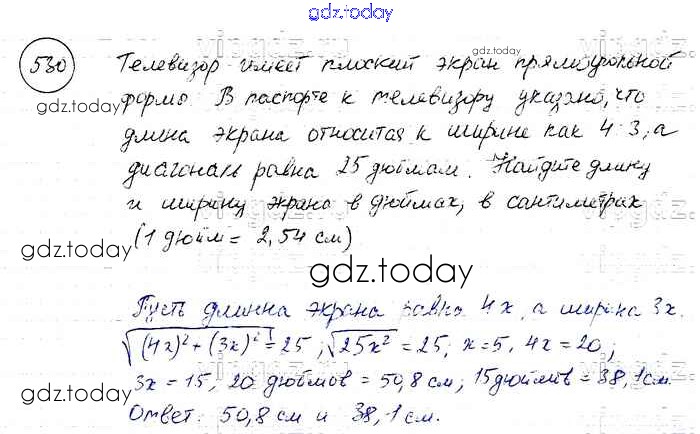 gdz.today
530
Телевизор имеет плоский экран прямоугольной
gdz.today
gdz.today
формы. В паспорте к телевизору указано, что
длина экрана относится к ширине как 4:3, а
диагональ равна 25 дюймам. Найдите длину
и ширину экрана в дюймах, в сантиметрах
gdz.today
(1 дюйм = 2,54 см)
gdz.today
gdz.today
Пусть длинна экрана равна 4x, а ширина 3x.
√(4x)² + (3x)² = 25; √25x² = 25; x = 5, 4x = 20;
gdz.today
gdz.today
3x = 15, 20 дюймов = 50,8 см; 15 дюймов = 38,1 см.
Ответ: 50,8 см и 38,1 см.